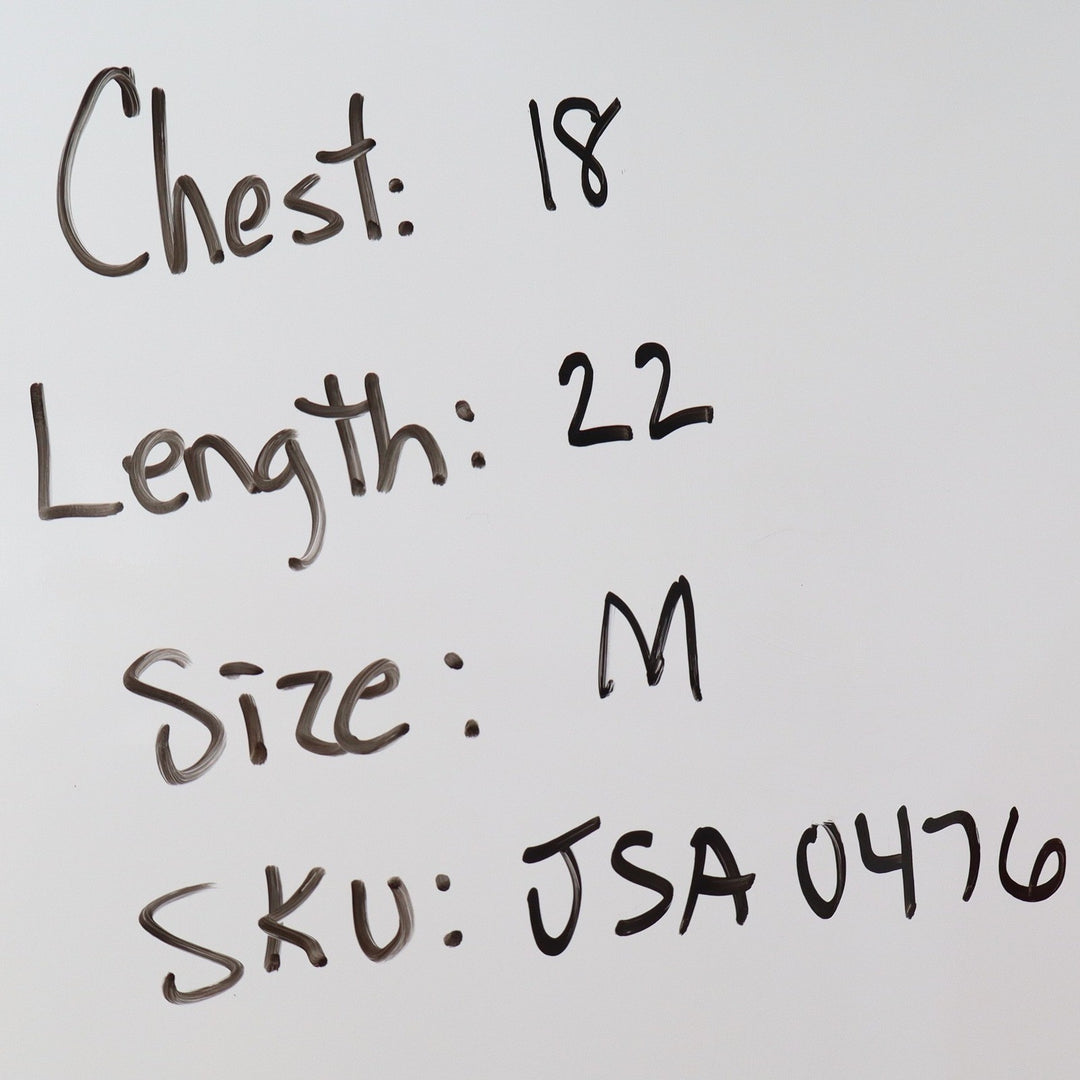 Chest: 18
Length: 22
Size: M
SKU: JSA 0476